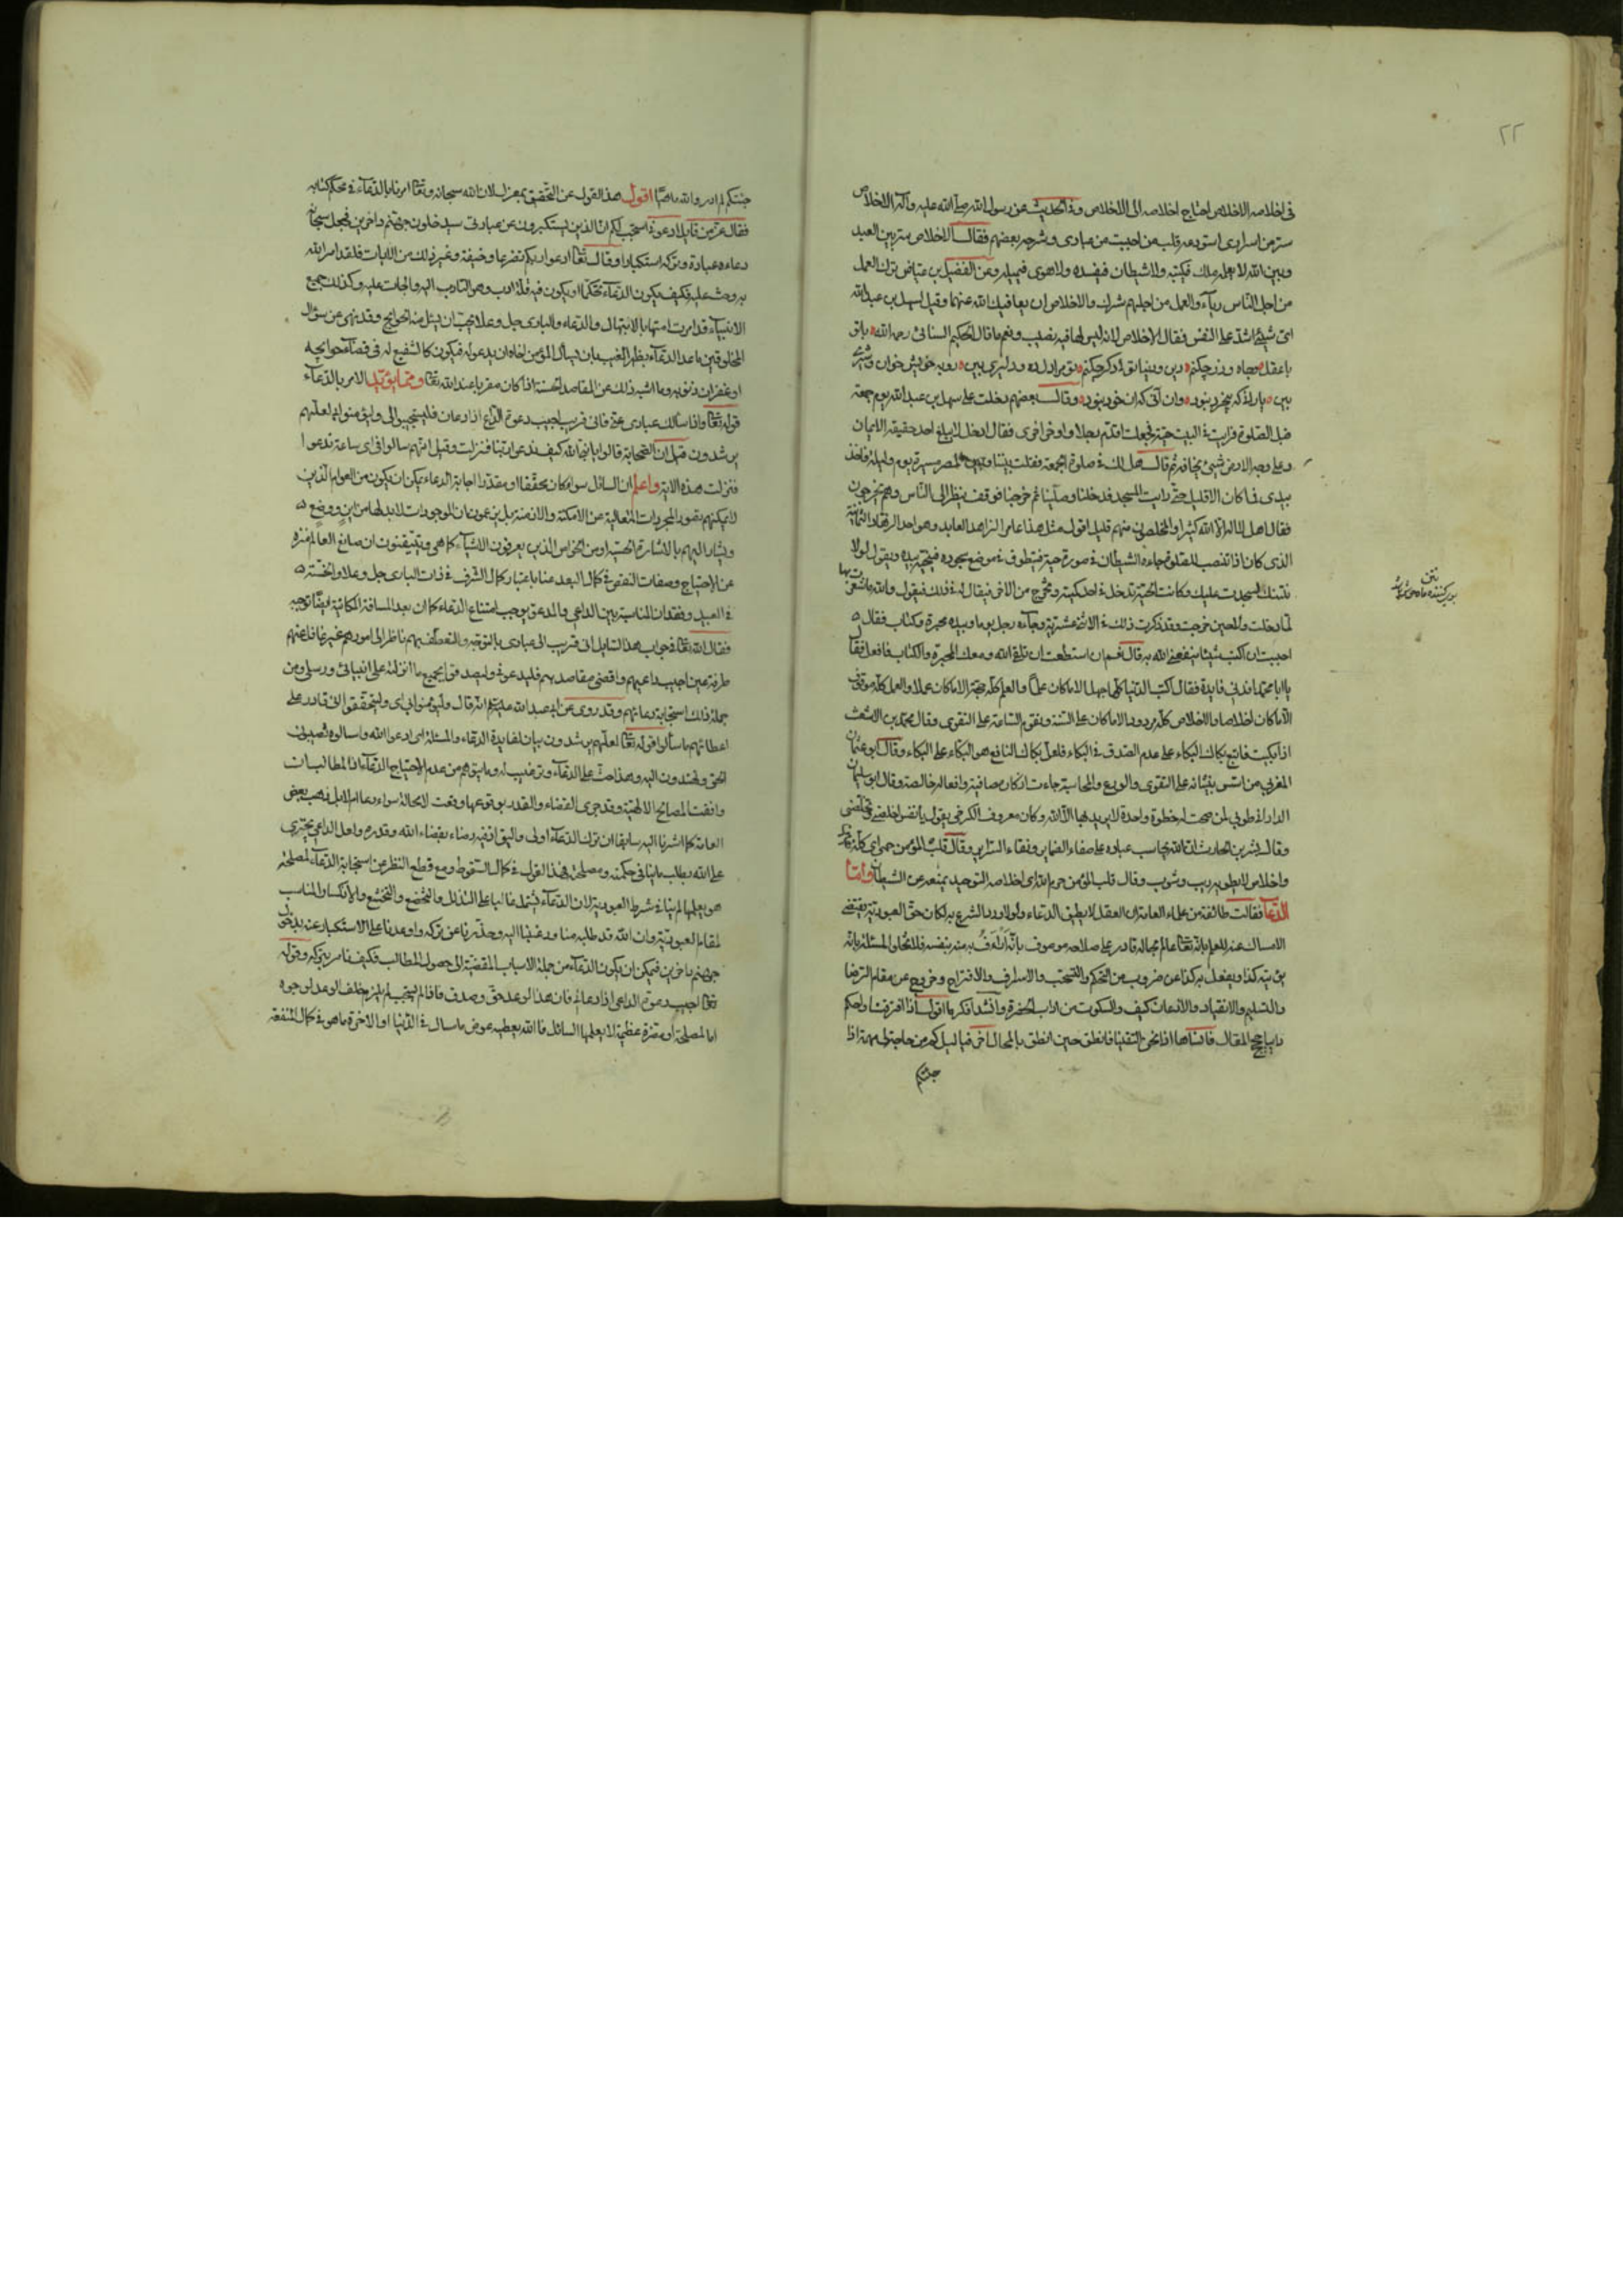 ٢٢
فى اخلاصه الاخلاص احتاج اخلاصه الى الاخلاص وفى الحديث عن رسول الله صلى الله عليه وآله الاخلاص
سر من اسرارى استودعه قلب من احببت من عبادى وشرحه بعضهم فقال الاخلاص ستر بين العبد
وبين الله لا يعلمه ملك فيكتبه ولا شيطان فيفسده ولا هوى فيميله وعن الفضيل بن عياض ترك العمل
من اجل الناس رياء والعمل من اجلهم شرك والاخلاص ان يعافيك الله عنهما وقيل لسهل بن عبد الله
اى شيئ اشد على النفس فقال الاخلاص لانه ليس لها فيه نصيب ونعم ما قال الحكيم السنائى رحمه الله
بين وقال بعضهم دخلت على سهل بن عبد الله يوم جمعة
قبل الصلوة فرايت فى البيت حية فجعلت اقدم رجلا واوخر اخرى فقال ادخل لا يبلغ احد حقيقة الايمان
وعلى وجه الارض شيئ يخافه ثم قال هل لك فى صلوة الجمعة فقلت بيننا وبين المصر مسيرة يوم وليلة فاخذ
بيدى فما كان الا قليل حتى رايت المسجد فدخلنا وصلينا ثم خرجنا فوقف ينظر الى الناس وهم يخرجون
فقال اهل لا اله الا الله كثير والمخلصون منهم قليل اقول مثل هذا عامر الزاهد العابد وهو احد الزهاد الثمانية
الذى كان اذا انتصب للصلوة جاءه الشيطان فى صورة حية فينطوى فى موضع سجوده فينحيه بيده ويقول لولا
نتنك لسجدت عليك وكانت الحية تدخل فى احد كميه وتخرج من الآخر فيقال له فى ذلك فيقول والله ما شعرت بها
لما دخلت ولا حين خرجت وقد ذكرت ذلك فى الاثنى عشرية وجاءه رجل يوما وبيده محبرة وكتاب فقال
احببت ان اكتب شيئا ينفعنى الله به قال نعم ان استطعت ان تلقى الله ومعك المحبرة والكتاب فافعل فقال
يا ابا محمد افدنى فايدة فقال اكتب الدنيا كلها جهل الا ما كان علما والعلم كله حجة الا ما كان عملا والعمل كله موقوف
الا ما كان اخلاصا والاخلاص كله مردود الا ما كان على السنة وتقوم السنة على التقوى وقال محمد بن الاشعث
اذا بكيت فاتبع بكاك البكاء على عدم الصدق فى البكاء فلعل بكاك النافع هو البكاء على البكاء وقال ابو عثمان
المغربى من اسس بنيانه على التقوى والورع والمحاسبة جاءت اذكاره صافية وافعاله خالصة وقال ابو سليمان
الدارانى طوبى لمن صحت له خطوة واحدة لا يريد بها الا الله وكان معروف الكرخى يقول يا نفس اخلصى تخلصى
وقال بشر بن الحارث ان الله يحاسب عباده على صفاء الضماير ونقاء السراير وقال قلب المؤمن حمى
واخلاص لا يطور به ريب وشوب وقال قلب المؤمن حرم الله اى اخلاصه التوحيد يمنعه عن الشيطان واما
الدعاء فقالت طائفة من علماء العامة ان العقل لا يطيق الدعاء ولولا ورود الشرع به لكان حق العبودية يقتضى
الامساك عنه للعلم بانه تعالى عالم بحاله قادر على صلاحه موصوف بانه
والتسليم والانقياد والاذعان كيف والسكوت من اداب الحضرة وانشد
جئتكم
جئتكم لم ادر والله ما هيا اقول هذا القول عن التحقيق بمعزل لان الله سبحانه وتعالى امرنا بالدعاء فى محكم كتابه
فقال عز من قايل ادعونى استجب لكم ان الذين يستكبرون عن عبادتى سيدخلون جهنم داخرين فجعل سبحانه
دعاءه عبادة وتركه استكبارا وقال تعالى ادعوا ربكم تضرعا وخيفة وغير ذلك من الايات فلقد امر الله
به وحث عليه فكيف يكون الدعاء تحكما او يكون فيه قلة ادب وهو التادب اليه والحاث عليه وكذلك جميع
الانبياء قد امرت امتها بالابتهال والدعاء والبارى جل وعلا يحب ان يسئل منه الحوايج وقد نهى عن سؤال
المخلوقين ما عدا الدعاء بظهر الغيب بان يسأل المؤمن اخاه ان يدعو له فيكون كالشفيع له فى قضاء حوايجه
او غفران ذنوبه وما اشبه ذلك عن المقاصد الحسنة اذا كان مقربا عند الله تعالى ومما يؤيد الامر بالدعاء
قوله تعالى واذا سألك عبادى عنى فانى قريب اجيب دعوة الداع اذا دعان فليستجيبوا لى وليؤمنوا بى لعلهم
يرشدون قيل ان الصحابة قالوا يا نبى الله كيف ندعوا ربنا فنزلت وقيل انهم سالوا فى اى ساعة ندعوا
فنزلت هذه الاية واعلم ان السائل سواء كان محققا او مقدرا اجابة الدعاء يمكن ان يكون من العوام الذين
لا يمكنهم تصور المجردات المتعالية عن الامكنة والازمنة بل يزعمون ان الموجودات لا بد لها من اين ووضع
ويشار اليهم بالاشارة الحسية او من الخواص الذين يعرفون الاشياء كما هى ويتيقنون ان صانع العالم منزه
عن الاحتياج وصفات النقص فى كمال البعد عنا باعتبار كمال الشرف فى ذات البارى جل وعلا والخسة
فى العبيد وفقدان المناسبة بين الداعى والمدعو يوجب امتناع الدعاء كما ان بعد المسافة المكانية ايضا توجبه
فقال الله تعالى فى جواب هذا السايل انى قريب الى عبادى بالتوجه والتعطف بهم ناظر الى امورهم غير غافل عنهم
طرفة عين اجيب داعيهم واقضى مقاصدهم فليدعونى وليصدقوا بجميع ما انزلته على انبيائى ورسلى ومن
جملة ذلك استجابة دعائهم وقد روى عن ابى عبد الله عليه السلام انه قال وليؤمنوا بى اى وليتحققوا انى قادر على
اعطائهم ما سألوا قوله تعالى لعلهم يرشدون بيان لفايدة الدعاء والمسئلة اى ادعوا الله واسالوه
الحق ويهتدون اليه وهذا حث على الدعاء وترغيب له وما يتوهم من عدم الاحتياج الدعاء اذ المطالب ان
وافقت المصالح الالهية وقد جرى القضاء والقدر بوقوعها وقعت لا محالة سواء دعا ام لا بل ذهب بعض
العامة كما اشرنا اليه سابقا ان ترك الدعاء اولى واليق اذ فيه رضاء بقضاء الله وقدره ولعل الداعى يجترى
على الله بطلب ما ينافى حكمته ومصلحته فهذا القول فى كمال السقوط ومع قطع النظر عن استجابة الدعاء لمصلحة
هو يعلمها لم ينافى شرط العبودية لان الدعاء يشتمل غالبا على التذلل والتخضع والتخشع والانكسار المناسب
لمقام العبودية وان الله قد طلبه منا ورغبنا اليه وحذرنا عن تركه واوعدنا على الاستكبار عنه بدخول
جهنم داخرين فيمكن ان يكون الدعاء من جملة الاسباب المقضية الى حصول المطالب فكيف نامر بتركه وقوله
تعالى اجيب دعوة الداعى اذا دعان فان هذا الوعد حق وصدق فاذا لم يستجب لم يلزم خلف الوعد لوجوه
اما لمصلحة او مضرة عظيمة لا يعلمها السائل فالله يعطيه عوض ما سال فى الدنيا او الاخرة ما هو فى كمال المنفعة